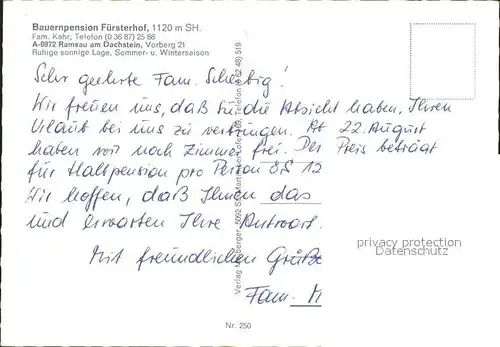 Bauernpension Fürsterhof, 1120 m SH.
Fam. Kahr, Telefon (0 36 87) 25 88
A-8972 Ramsau am Dachstein, Vorberg 21
Ruhige sonnige Lage. Sommer- u. Wintersaison
Sehr geehrte Fam. !
Wir freuen uns, daß Sie die Absicht haben, Ihren
Urlaub bei uns zu verbringen. Ab 22. August
haben wir noch Zimmer frei. Der Preis beträgt
für Halbpension pro Person ÖS 12
Wir hoffen, daß Ihnen das
und erwarten Ihre Antwort.
Mit freundlichen Grüße
Fam. M
privacy protection
Datenschutz
Nr. 250